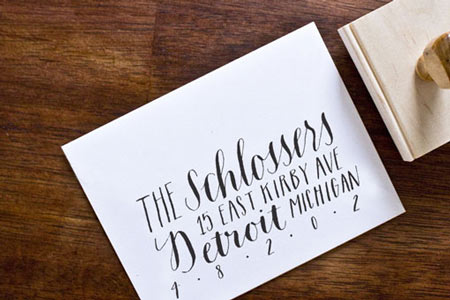 THE Schlossers
15 EAST KIRBY AVE
Detroit MICHIGAN
4 · 8 · 2 · 0 · 2